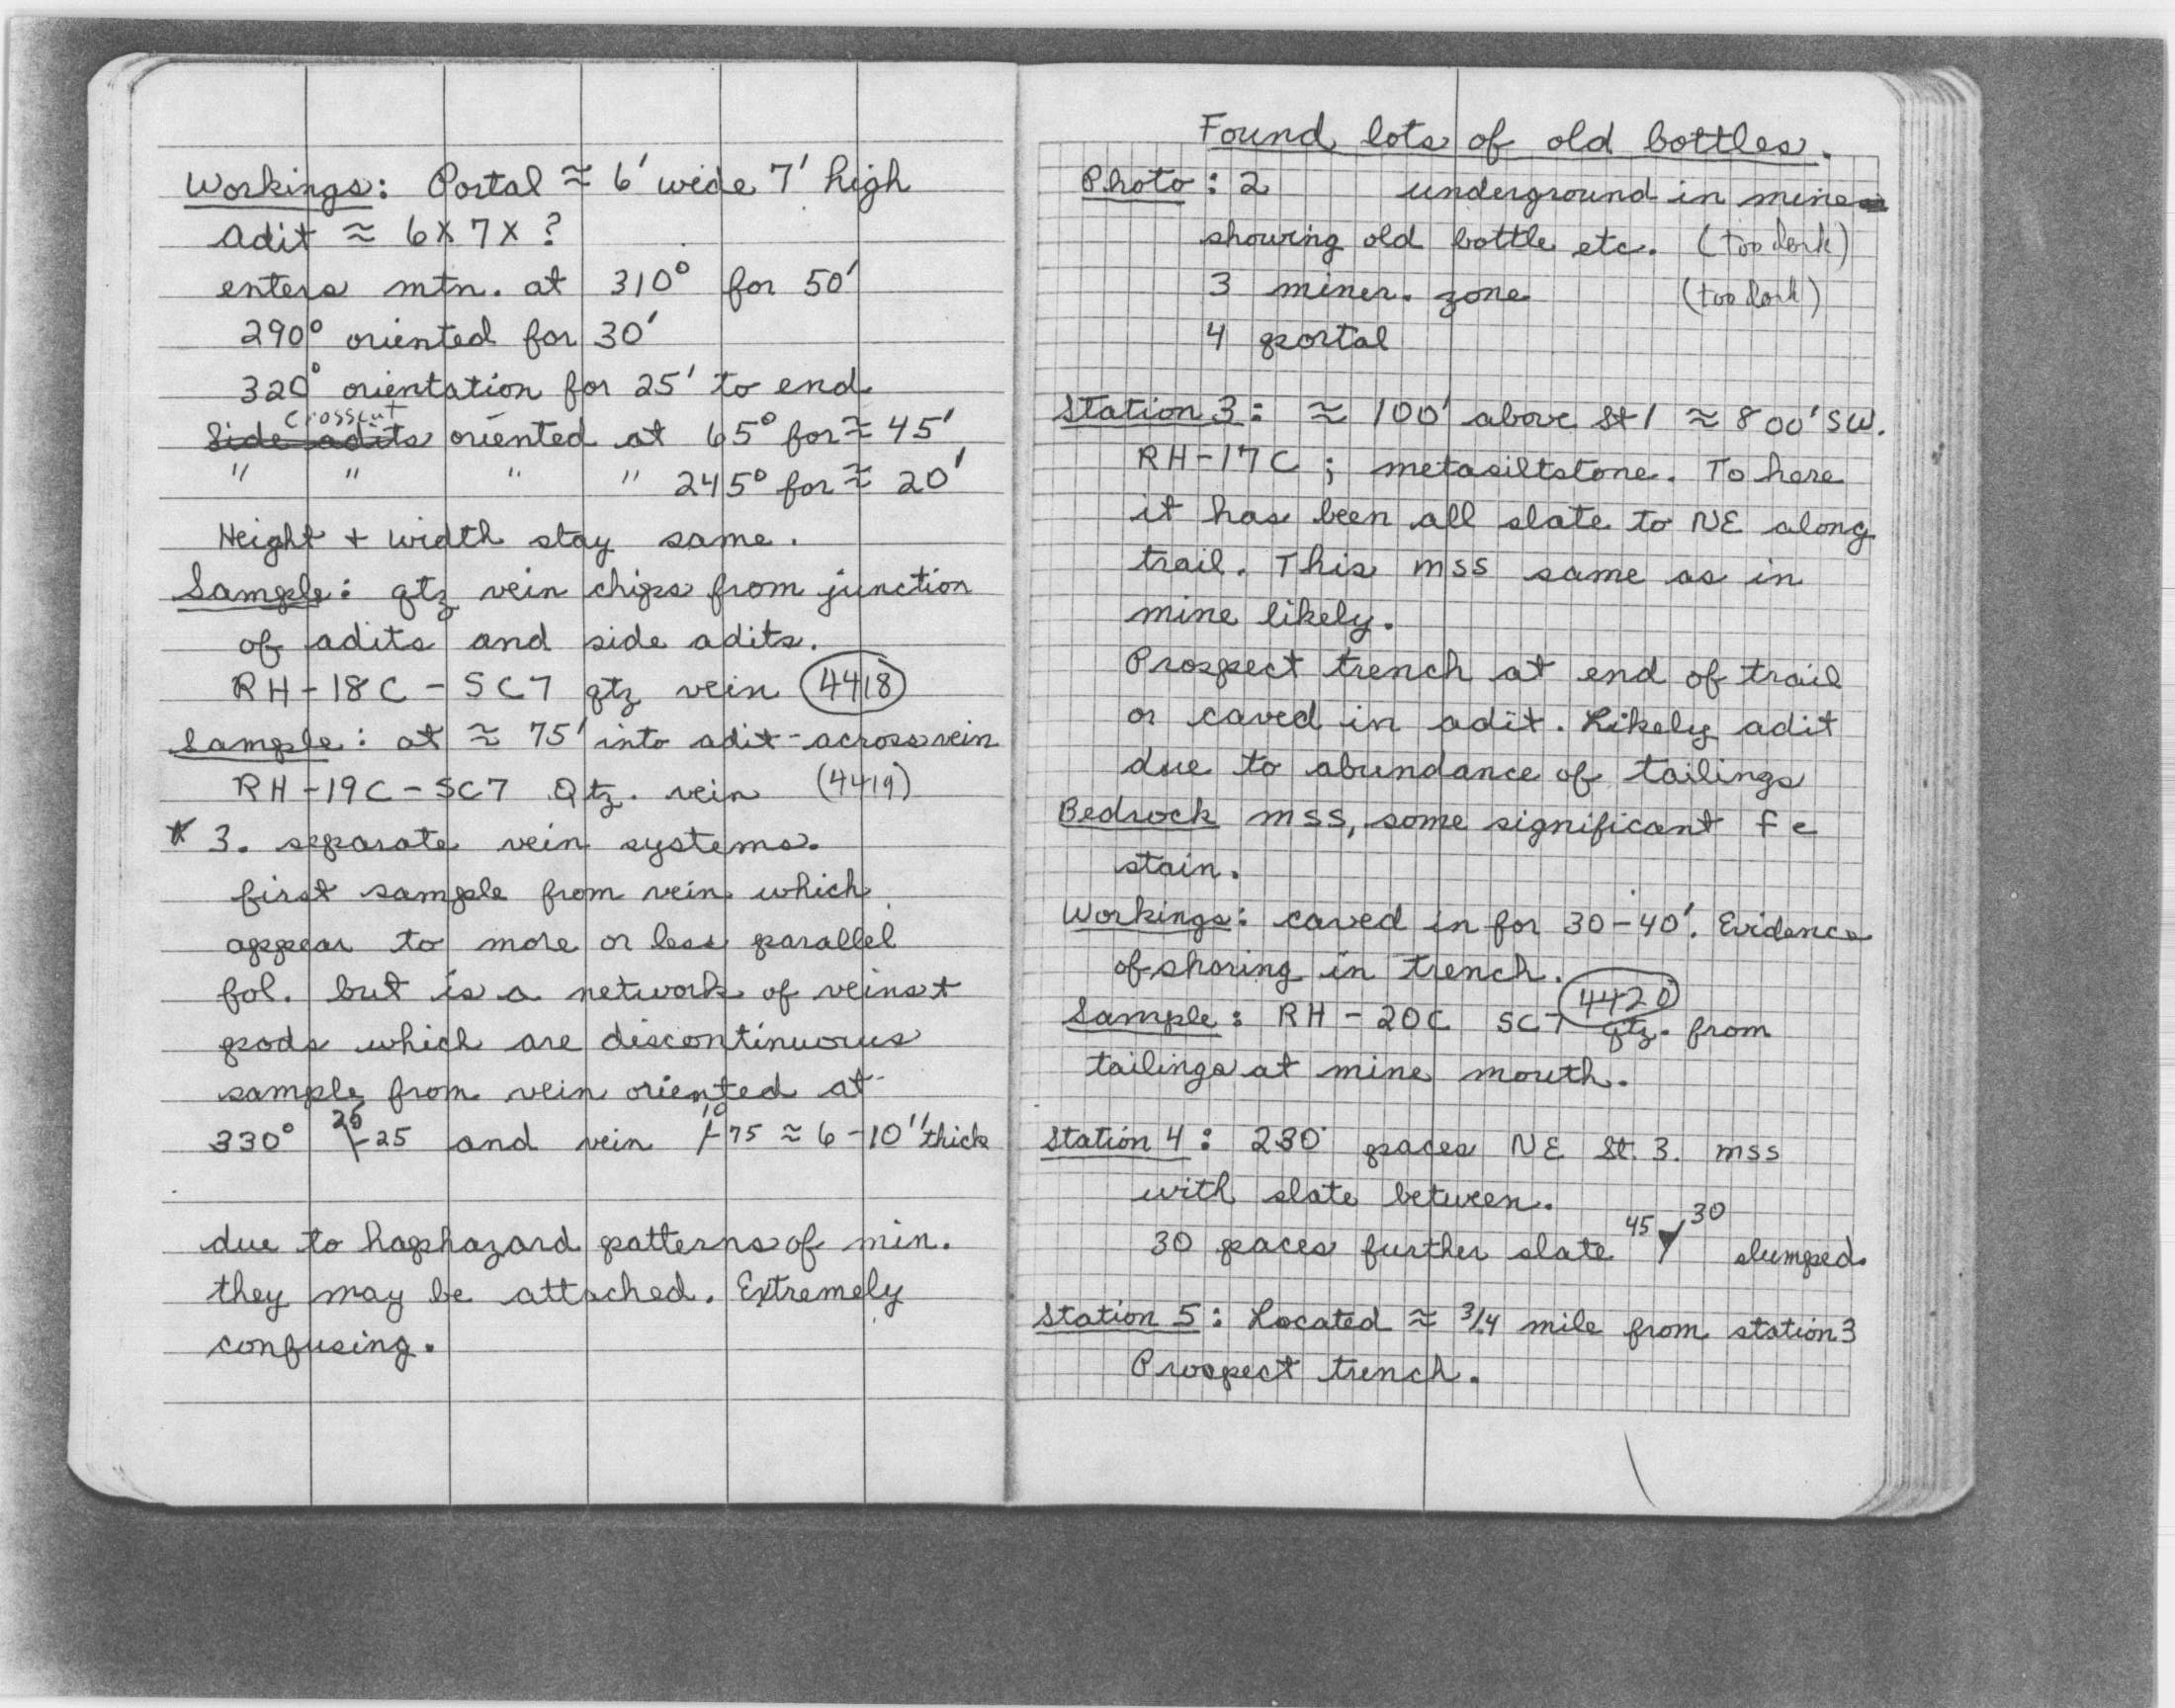 Workings: Portal ≈ 6' wide 7' high
Adit ≈ 6 x 7 x ?
enters mtn. at 310° for 50'
290° oriented for 30'
320° orientation for 25' to end
Crosscut
Side adits oriented at 65° for ≈ 45'
" " " " 245° for ≈ 20'
Height + width stay same.
Sample: qtz vein chips from junction
of adits and side adits.
RH-18C-SC7 qtz vein 4418
Sample: at ≈ 75' into adit - across vein
RH-19C-SC7 Qtz. vein (4419)
* 3. separate vein systems.
first sample from vein which
appear to more or less parallel
fol. but is a network of veins +
pods which are discontinuous
sample from vein oriented at
330° 25 25 and vein 10 75 ≈ 6-10" thick
due to haphazard patterns of min.
they may be attached. Extremely
confusing.
Found lots of old bottles.
Photo: 2 underground in mine
showing old bottle etc. (too dark)
3 miner. zone (too dark)
4 portal
Station 3: ≈ 100' above St 1 ≈ 800' SW.
RH-17C; metasiltstone. To here
it has been all slate to NE along
trail. This mss same as in
mine likely.
Prospect trench at end of trail
or caved in adit. Likely adit
due to abundance of tailings
Bedrock mss, some significant Fe
stain.
Workings: caved in for 30-40'. Evidence
of shoring in trench.
4420
Sample: RH-20C SC7 qtz. from
tailings at mine mouth.
Station 4: 230 paces NE St. 3. mss
with slate between.
30 paces further slate 45 30 slumped.
Station 5: Located ≈ 3/4 mile from station 3
Prospect trench.